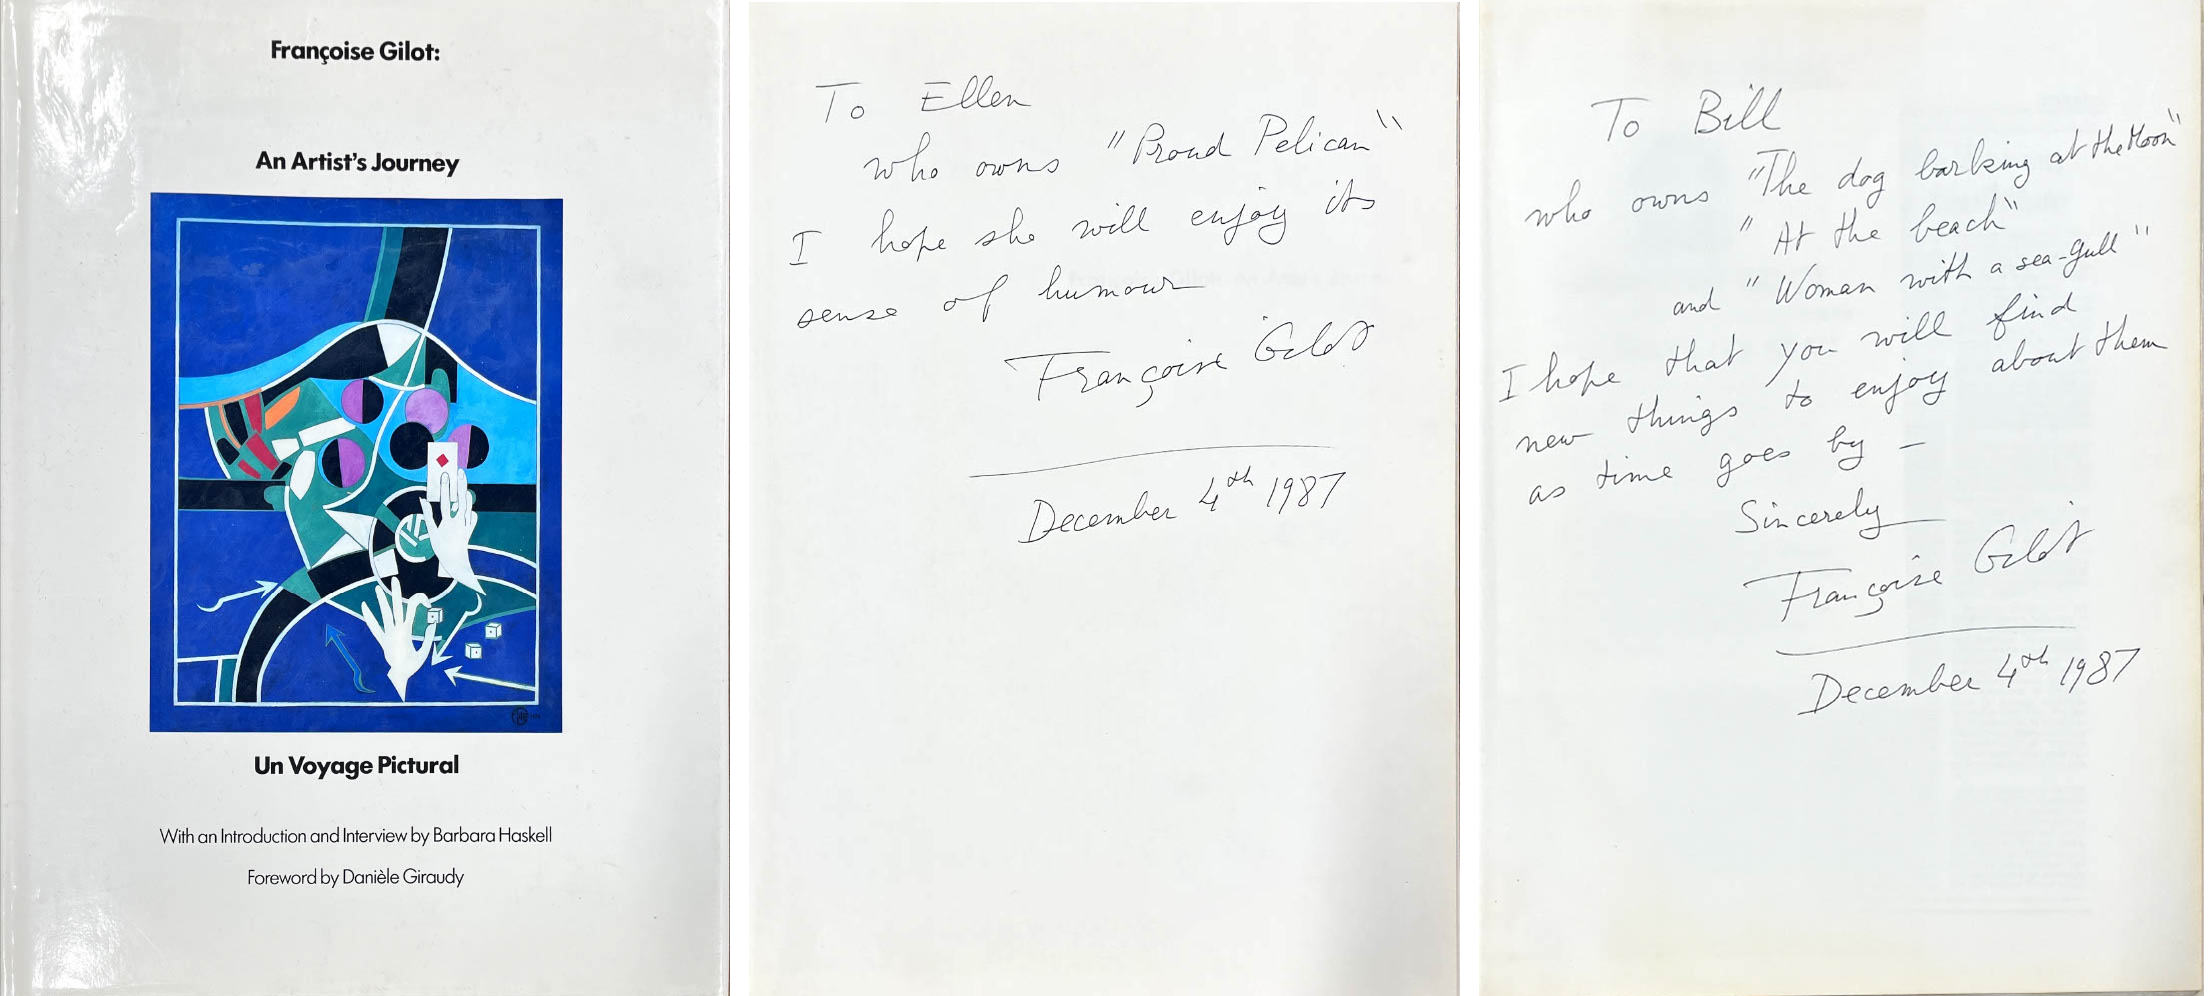 Françoise Gilot:
An Artist's Journey
Un Voyage Pictural
With an Introduction and Interview by Barbara Haskell
Foreword by Danièle Giraudy
To Ellen
who owns "Proud Pelican"
I hope she will enjoy its
sense of humour
Françoise Gilot
December 4th 1987
To Bill
who owns "The dog barking at the Moon"
"At the beach"
and "Woman with a sea-gull"
I hope that you will find
new things to enjoy about them
as time goes by –
Sincerely
Françoise Gilot
December 4th 1987